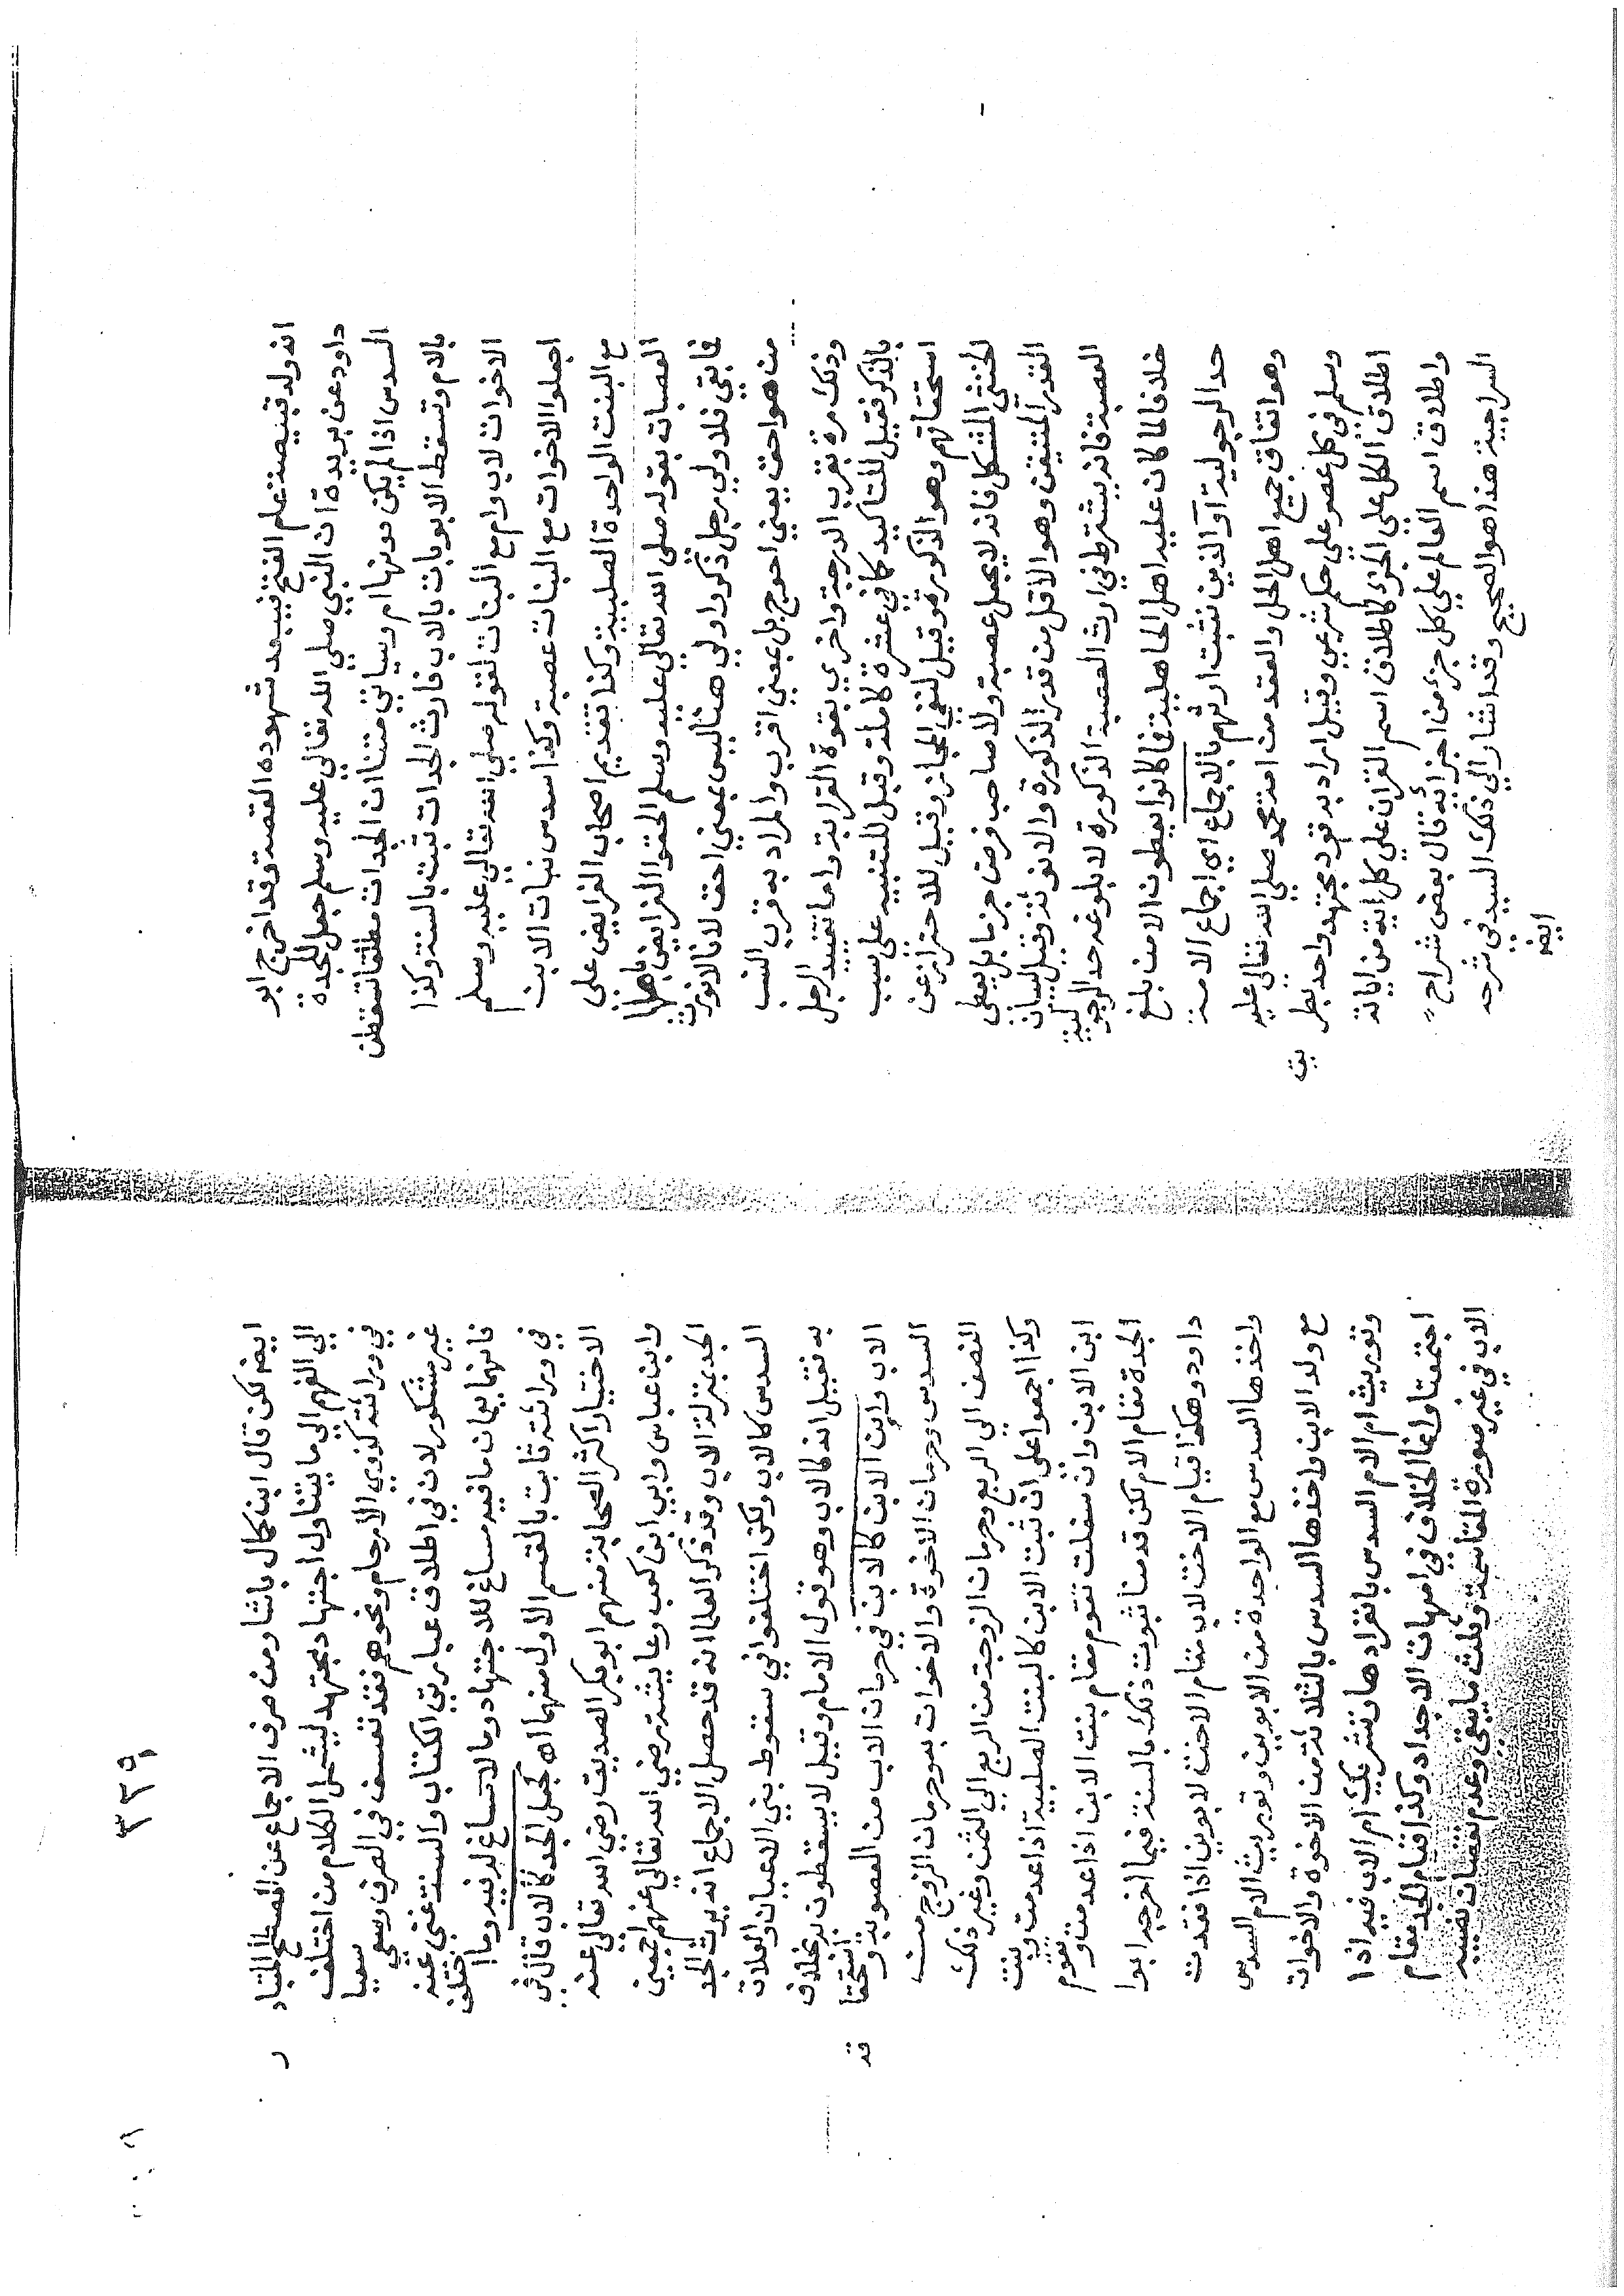 انه ولد قبيصة علم الفتح فيبعد شهوده القصة وقد اخرج ابو
داود عن بريدة ان النبي صلي الله تعالي عليه وسلم جعل للجدة
السدس اذا لم يكن دونها ام وسياتي متنا ان الجدات مطلقا تسقطن
بالام وتسقط الابويات بالاب فارث الجدات ثبت بالسنة وكذا
الاخوات لاب وام مع البنات لقوله صلي الله تعالي عليه وسلم
اجعلوا الاخوات مع البنات عصبة وكذا سدس نبات الابن
مع البنت الواحدة الصلبية وكذا تقديم اصحاب الفرايض علي
العصبات بقوله صلي الله تعالي عليه وسلم الحقوا الفرايض باهلها
فما بقي فلاولي رجل ذكر واولي هنا ليس بمعني احق لانا لا نورث
من هو احق بمعني احوج بل بمعني اقرب والمراد به قرب النسب
وذلك مرة بقرب الدرجة واخري بقوة القرابة واما تقييد الرجل
بالذكر فقيل للتاكيد كما في عشرة كاملة وقيل للتنبيه علي سبب
استحقاقهم وهو الذكورة وقيل لنفي المجاز وقيل للاحتراز عن
الخنثي المشكل فانه لا يجعل عصبة ولا صاحب فرض جزما بل يعطي
القدر المتيقن وهو الاقل من قدر الذكورة والانوثة وقيل لبيان
العصبة فانه يشترط في ارث العصبة الذكورة لا بلوغه حد الرجولية
خلافا لما كان عليه اهل الجاهلية فما كانوا يعطون الا من بلغ
حد الرجولية أو الذين ثبت ارثهم بالاجماع اي اجماع الامة
وهو اتفاق جميع اهل الحل والعقد من امة محمد صلي الله تعالي عليه
وسلم في كل عصر علي حكم شرعي وقيل اراد به قود مجتهد واحد بطريق
اطلاق الكل علي الجزء كاطلاق اسم القران علي كل اية من اياته
واطلاق اسم العالم علي كل جزء من اجزائه قال بعض شراح
السراجية هذا هو الصحيح وقد اشار الي ذلك السيد في شرحه
ايضه
٣٣٩
ايضه لكن قال ابن كمال باشا ومن صرف الاجماع عن المصطلح المتبادر
الي الفهم الي ما يتناول اجتهاد مجتهد ليشمل الكلام من اختلف
في وراثته كذوي الأرحام ونحوهم فقد تعسف في الصرف وسعي سعيا
غير مشكور لان في اطلاق عبارتي الكتاب والسنة غني عنه
فانهما يعمان ما فيه مساغ للاجتهاد وما لا مساغ له فيه وما اختلف
في وراثته ثابت بالقسم الاول منهما اه كجعل الجد كالاب قال في
الاختيار اكثر الصحابة منهم ابو بكر الصديق رضي الله تعالي عنه
وابن عباس وابي ابن كعب وعايشة رضي الله تعالي عنهم اجمعين
الجد بمنزلة الاب وقد ذكر العلما انه قد حصل الاجماع انه يرث الجد
السدس كالاب ولكن اختلفوا في سقوط بني الاعيان والعلات
به فقيل انه كالاب وهو قول الامام وقيل لا يسقطون به بخلاف
الاب وابن الابن كالابن في حرمان الاب من العصوبة واستحقاقه
السدس وحرمان الاخوة والاخوات به وحرمان الزوج من
النصف الي الربع وحرمان الزوجة من الربع الي الثمن وغير ذلك
وكذا اجمعوا علي ان بنت الابن كالبنت الصلبية اذا عدمت وبنت
ابن الابن وان سفلت تقوم مقام بنت الابن اذا عدمت وتقوم
الجدة مقام الام لكن قدمنا ثبوت ذلك بالسنة فيما اخرجه ابوا
داود وهكذا قيام الاخت لاب مقام الاخت لابوين اذا فقدت
واخذها السدس مع الواحدة من الابوين وتوريث الام السدس
مع ولد الابن واخذها السدس بالثلاثة من الاخوة والاخوات
وتوريث ام الام السدس بانفرادها وتشريك ام الاب فيه اذا
اجتمعتا وانما الخلاف في امهات الاجداد وكذا قيام الجد مقام
الاب في غير صورة المقاسمة وثلث ما يبقي وعدم نقصان نصيبه